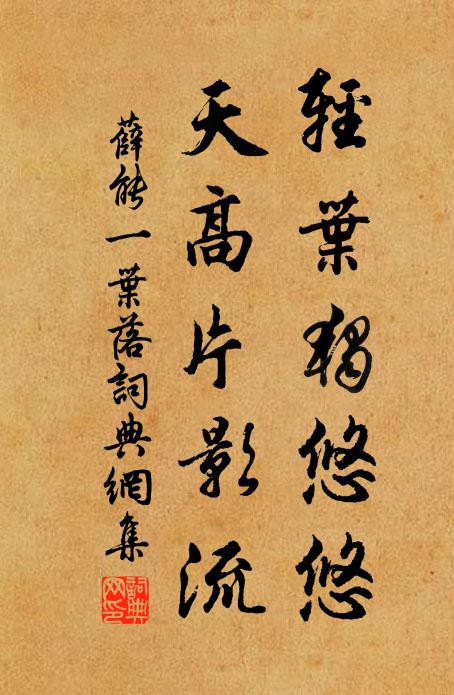 輕葉獨悠悠
天高片影流
薛能一葉落詞典網集
詞典
网印